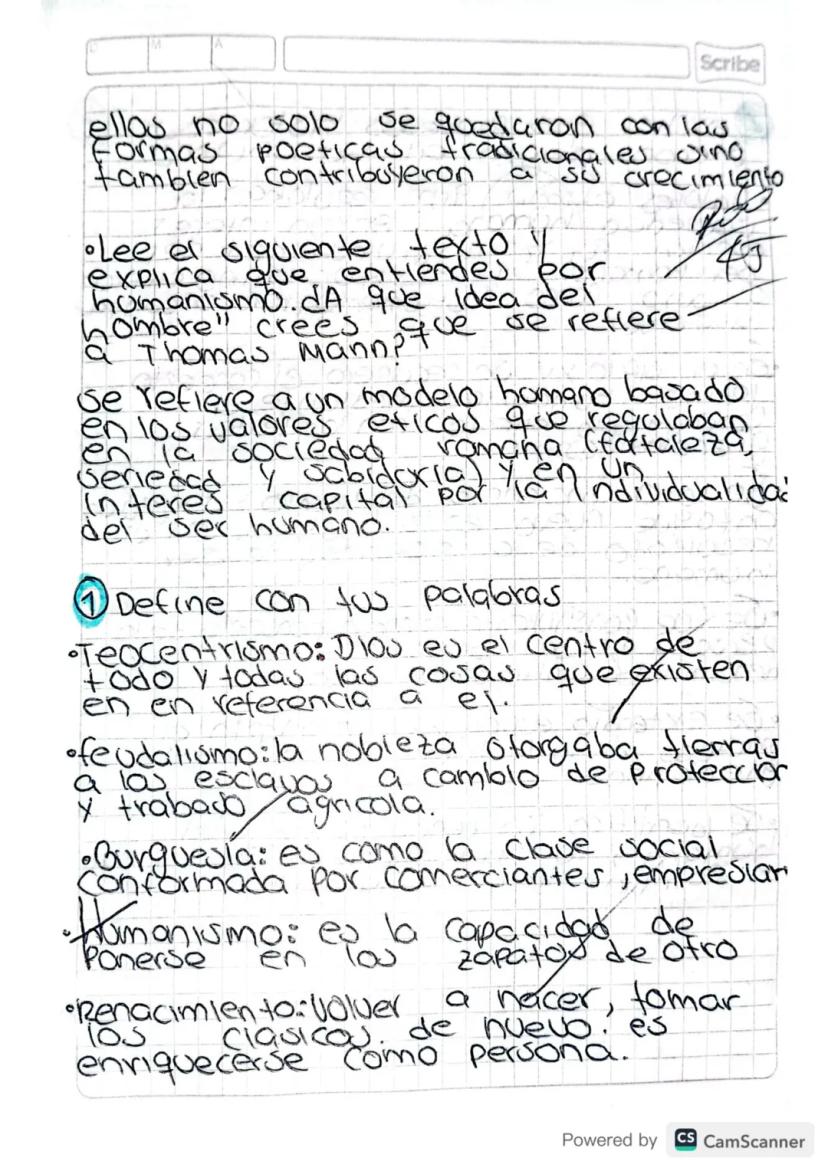 D M A
Scribe
ellos no solo se quedaron con las
formas poeticas tradicionales sino
tambien contribuyeron a su crecimiento
•Lee el siguiente texto y
explica que entiendes por
humanismo. ¿A que idea del
hombre" crees que se refiere
a Thomas Mann?
se refiere a un modelo humano basado
en los valores eticos que regulaban
en la sociedad romana (fortaleza,
seriedad y sabiduria) y en un
interes capital por la individualidad
del ser humano.
1 Define con tus palabras
•Teocentrismo: Dios es el centro de
todo y todas las cosas que existen
en en referencia a el.
•feudalismo: la nobleza otorgaba tierras
a los esclavos a cambio de proteccion
y trabajo agricola.
•Burguesia: es como la clase social
conformada por comerciantes, empresiar
•Humanismo: es la capacidad de
Ponerse en los zapatos de otro
•Renacimiento: Volver a nacer, tomar
los clasicos. de nuevo. es
enriquecerse como persona.
Powered by CS CamScanner